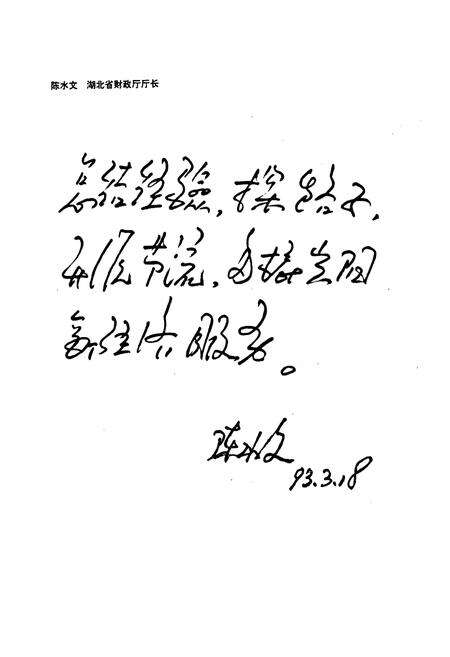 陈水文 湖北省财政厅厅长
总结经验,探路子,
开源节流,
经济服务。
陈水文
93.3.18